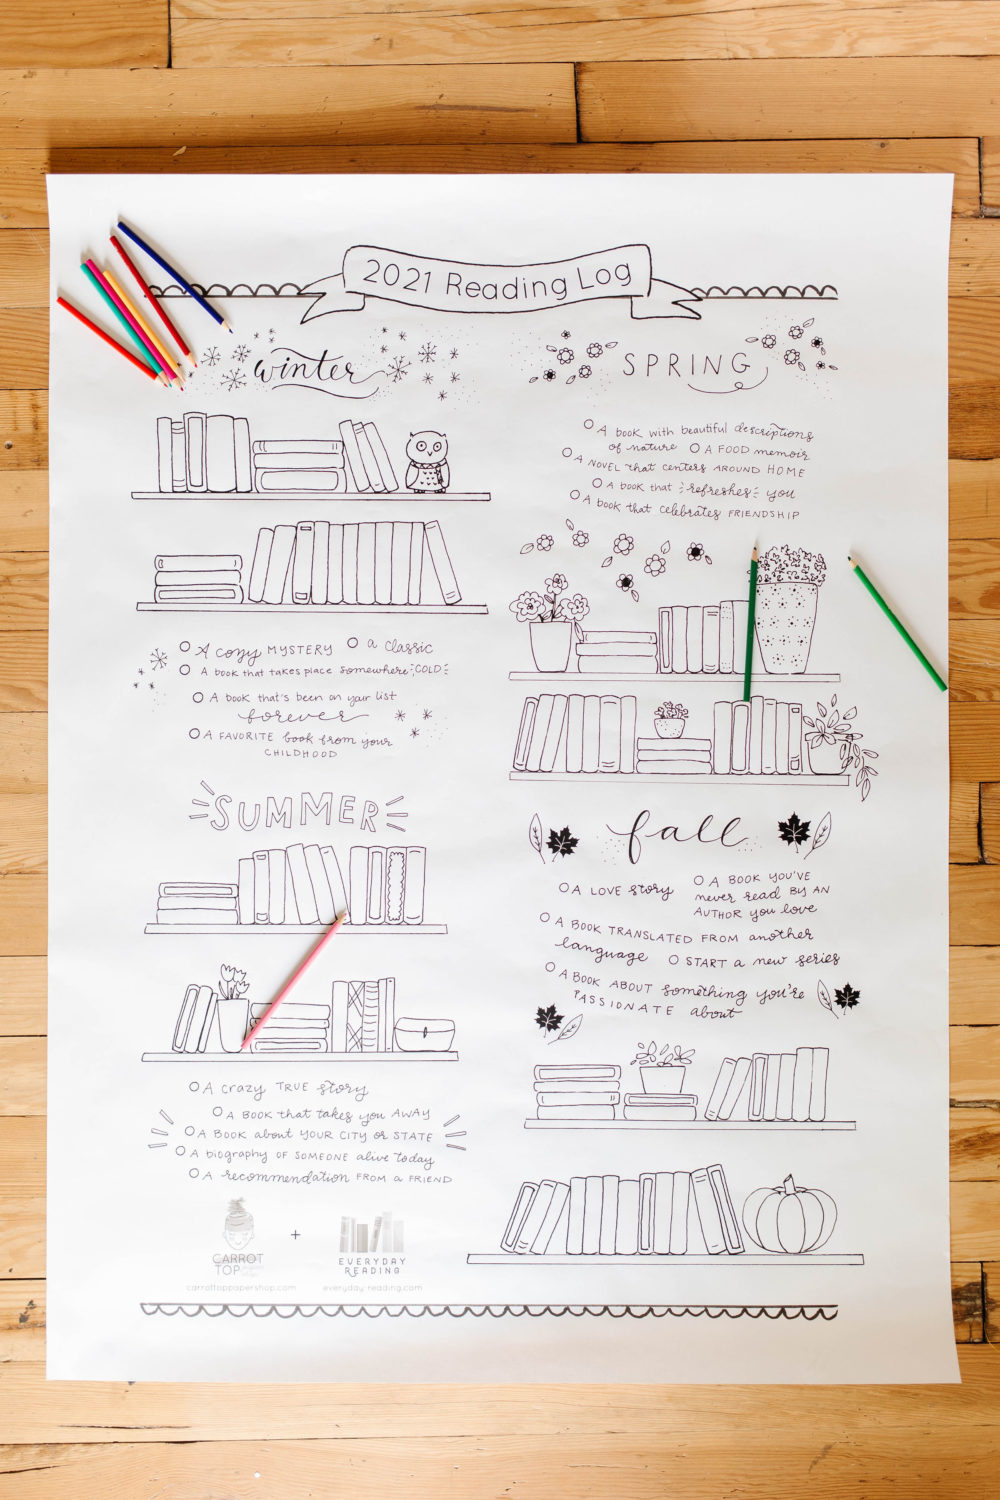 2021 Reading Log
winter
A cozy MYSTERY
a classic
A book that takes place somewhere COLD
A book that's been on your list
forever
A FAVORITE book from your
CHILDHOOD
SPRING
A book with beautiful descriptions
of nature
A FOOD memoir
A NOVEL that centers AROUND HOME
A book that refreshes you
A book that celebrates FRIENDSHIP
SUMMER
A crazy TRUE story
A BOOK that takes you AWAY
A BOOK about YOUR CITY or STATE
A biography OF SOMEONE alive today
A recommendation FROM a FRIEND
fall
A LOVE story
A BOOK YOU'VE
never read BY AN
AUTHOR you love
A BOOK TRANSLATED FROM another
language
START a new series
A BOOK ABOUT something you're
PASSIONATE about
CARROT
TOP
carrottoppapershop.com
+
EVERYDAY
READING
everyday-reading.com